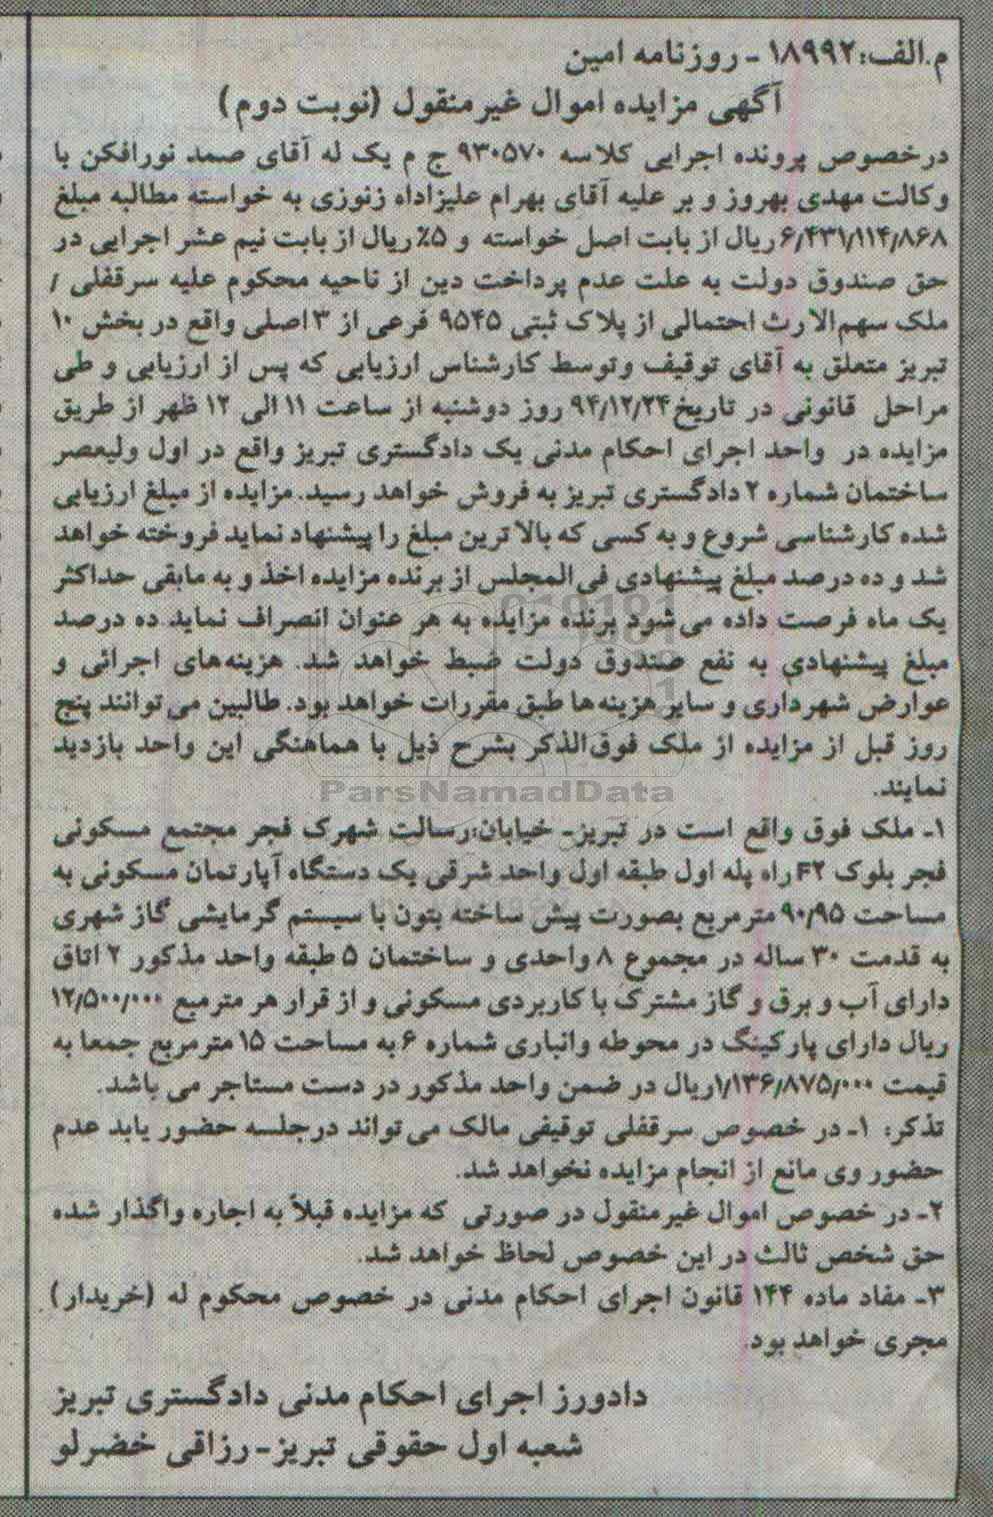 م.الف:۱۸۹۹۲ - روزنامه امین
آگهی مزایده اموال غیرمنقول (نوبت دوم)
درخصوص پرونده اجرایی کلاسه ۹۳۰۵۷۰ ج م یک له آقای صمد نورافکن با
وکالت مهدی بهروز و بر علیه آقای بهرام علیزاداه زنوزی به خواسته مطالبه مبلغ
۶/۴۳۱/۱۱۴/۸۶۸ ریال از بابت اصل خواسته و ۵٪ ریال از بابت نیم عشر اجرایی در
حق صندوق دولت به علت عدم پرداخت دین از ناحیه محکوم علیه سرقفلی /
ملک سهم‌الارث احتمالی از پلاک ثبتی ۹۵۴۵ فرعی از ۳ اصلی واقع در بخش ۱۰
تبریز متعلق به آقای توقیف وتوسط کارشناس ارزیابی که پس از ارزیابی و طی
مراحل قانونی در تاریخ ۹۴/۱۲/۲۴ روز دوشنبه از ساعت ۱۱ الی ۱۲ ظهر از طریق
مزایده در واحد اجرای احکام مدنی یک دادگستری تبریز واقع در اول ولیعصر
ساختمان شماره ۲ دادگستری تبریز به فروش خواهد رسید. مزایده از مبلغ ارزیابی
شده کارشناسی شروع و به کسی که بالاترین مبلغ را پیشنهاد نماید فروخته خواهد
شد و ده درصد مبلغ پیشنهادی فی‌المجلس از برنده مزایده اخذ و به مابقی حداکثر
یک ماه فرصت داده می‌شود برنده مزایده به هر عنوان انصراف نماید ده درصد
مبلغ پیشنهادی به نفع صندوق دولت ضبط خواهد شد. هزینه‌های اجرائی و
عوارض شهرداری و سایر هزینه‌ها طبق مقررات خواهد بود. طالبین می‌توانند پنج
روز قبل از مزایده از ملک فوق‌الذکر بشرح ذیل با هماهنگی این واحد بازدید
نمایند.
ParsNamadData
۱- ملک فوق واقع است در تبریز- خیابان:رسالت شهرک فجر مجتمع مسکونی
فجر بلوک F۲ راه پله اول طبقه اول واحد شرقی یک دستگاه آپارتمان مسکونی به
مساحت ۹۰/۹۵ مترمربع بصورت پیش ساخته بتون با سیستم گرمایشی گاز شهری
به قدمت ۳۰ ساله در مجموع ۸ واحدی و ساختمان ۵ طبقه واحد مذکور ۲ اتاق
دارای آب و برق و گاز مشترک با کاربردی مسکونی و از قرار هر مترمبع ۱۲/۵۰۰/۰۰۰
ریال دارای پارکینگ در محوطه وانباری شماره ۶ به مساحت ۱۵ مترمربع جمعا به
قیمت ۱/۱۳۶/۸۷۵/۰۰۰ریال در ضمن واحد مذکور در دست مستاجر می باشد.
تذکر: ۱- در خصوص سرقفلی توقیفی مالک می‌تواند درجلسه حضور یابد عدم
حضور وی مانع از انجام مزایده نخواهد شد.
۲- در خصوص اموال غیرمنقول در صورتی که مزایده قبلاً به اجاره واگذار شده
حق شخص ثالث در این خصوص لحاظ خواهد شد.
۳- مفاد ماده ۱۴۴ قانون اجرای احکام مدنی در خصوص محکوم له (خریدار)
مجری خواهد بود.
دادورز اجرای احکام مدنی دادگستری تبریز
شعبه اول حقوقی تبریز- رزاقی خضرلو